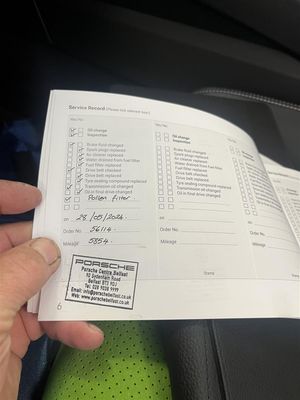 Service Record (Please tick relevant box!)
Yes No
Oil change
Inspection
Brake fluid changed
Spark plugs replaced
Air cleaner replaced
Water drained from fuel filter
Fuel filter replaced
Drive belt checked
Drive belt replaced
Tyre sealing compound replaced
Transmission oil changed
Oil in final drive changed
Pollen filter
on 28/05/2024
Order No. 56114
Mileage 5854
PORSCHE
Porsche Centre Belfast
90 Sydenham Road
Belfast BT3 9DJ
Tel: 028 9038 9999
Email: info@porschebelfast.co.uk
Web: www.porschebelfast.co.uk
6
Yes No
Oil change
Inspection
Brake fluid changed
Spark plugs replaced
Air cleaner replaced
Water drained from fuel filter
Fuel filter replaced
Drive belt checked
Drive belt replaced
Tyre sealing compound replaced
Transmission oil changed
Oil in final drive changed
on
Order No.
Mileage
Stamp